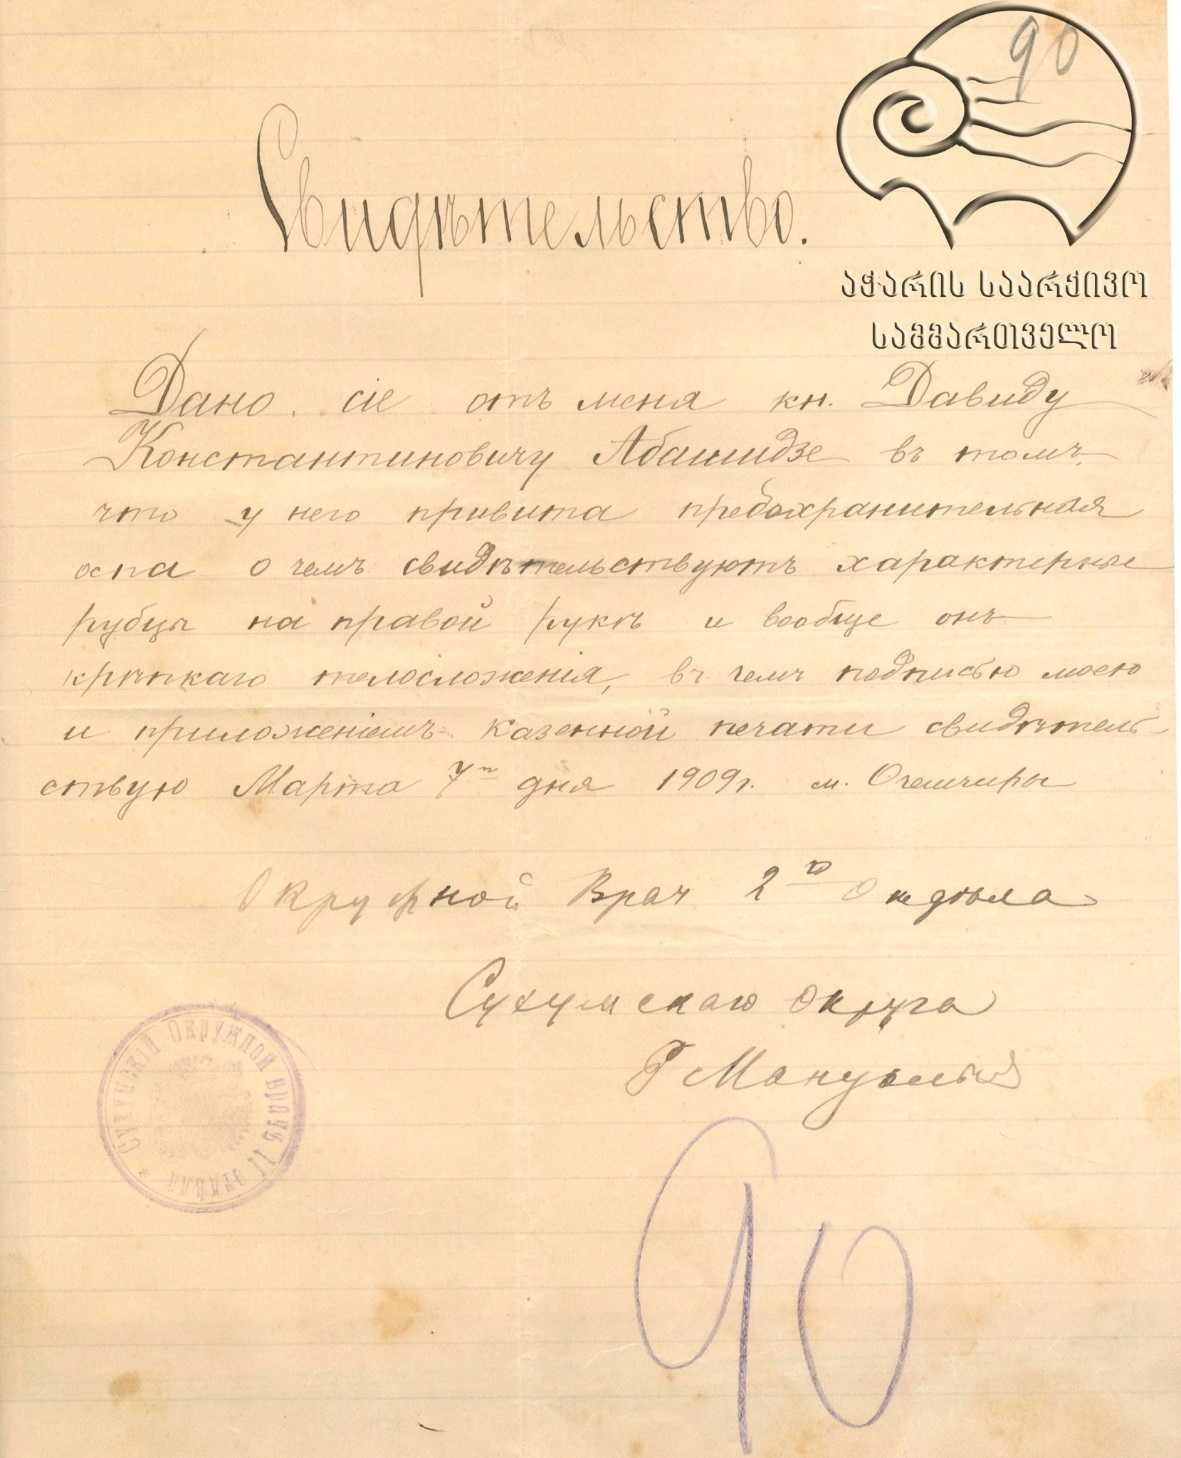 90
Свидѣтельство.
აჭარის საარქივო
სამმართველო
Дано сіе отъ меня кн. Давиду
Константиновичу Абашидзе въ томъ,
что у него привита предохранительная
оспа о чемъ свидѣтельствуютъ характерные
рубцы на правой рукѣ и вообще онъ
крѣпкаго телосложенія, въ чемъ подписью моею
и приложеніемъ казенной печати свидѣтель-
ствую Марта 7го дня 1909г. м. Очемчиры
Окружной Врач 2го Отдѣла
Сухумскаго Округа
Сухумскій Окружной Врачъ II отдѣла
90